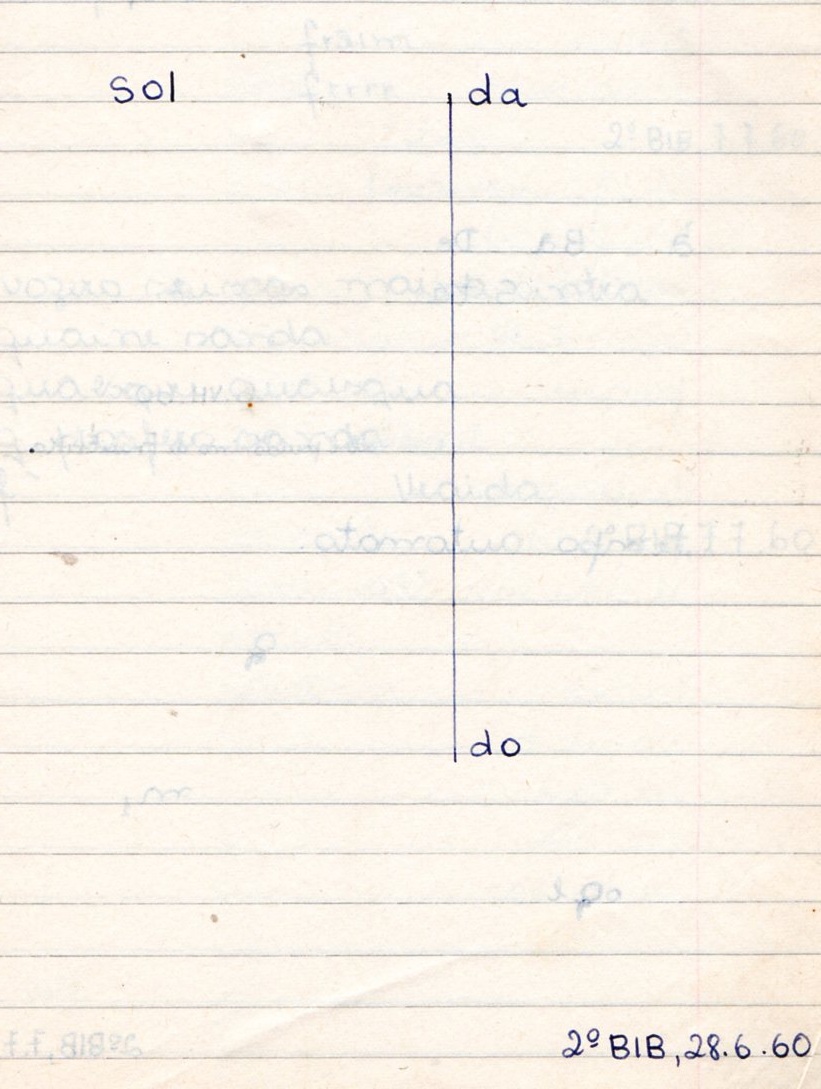 sol da
do
2º BIB, 28.6.60